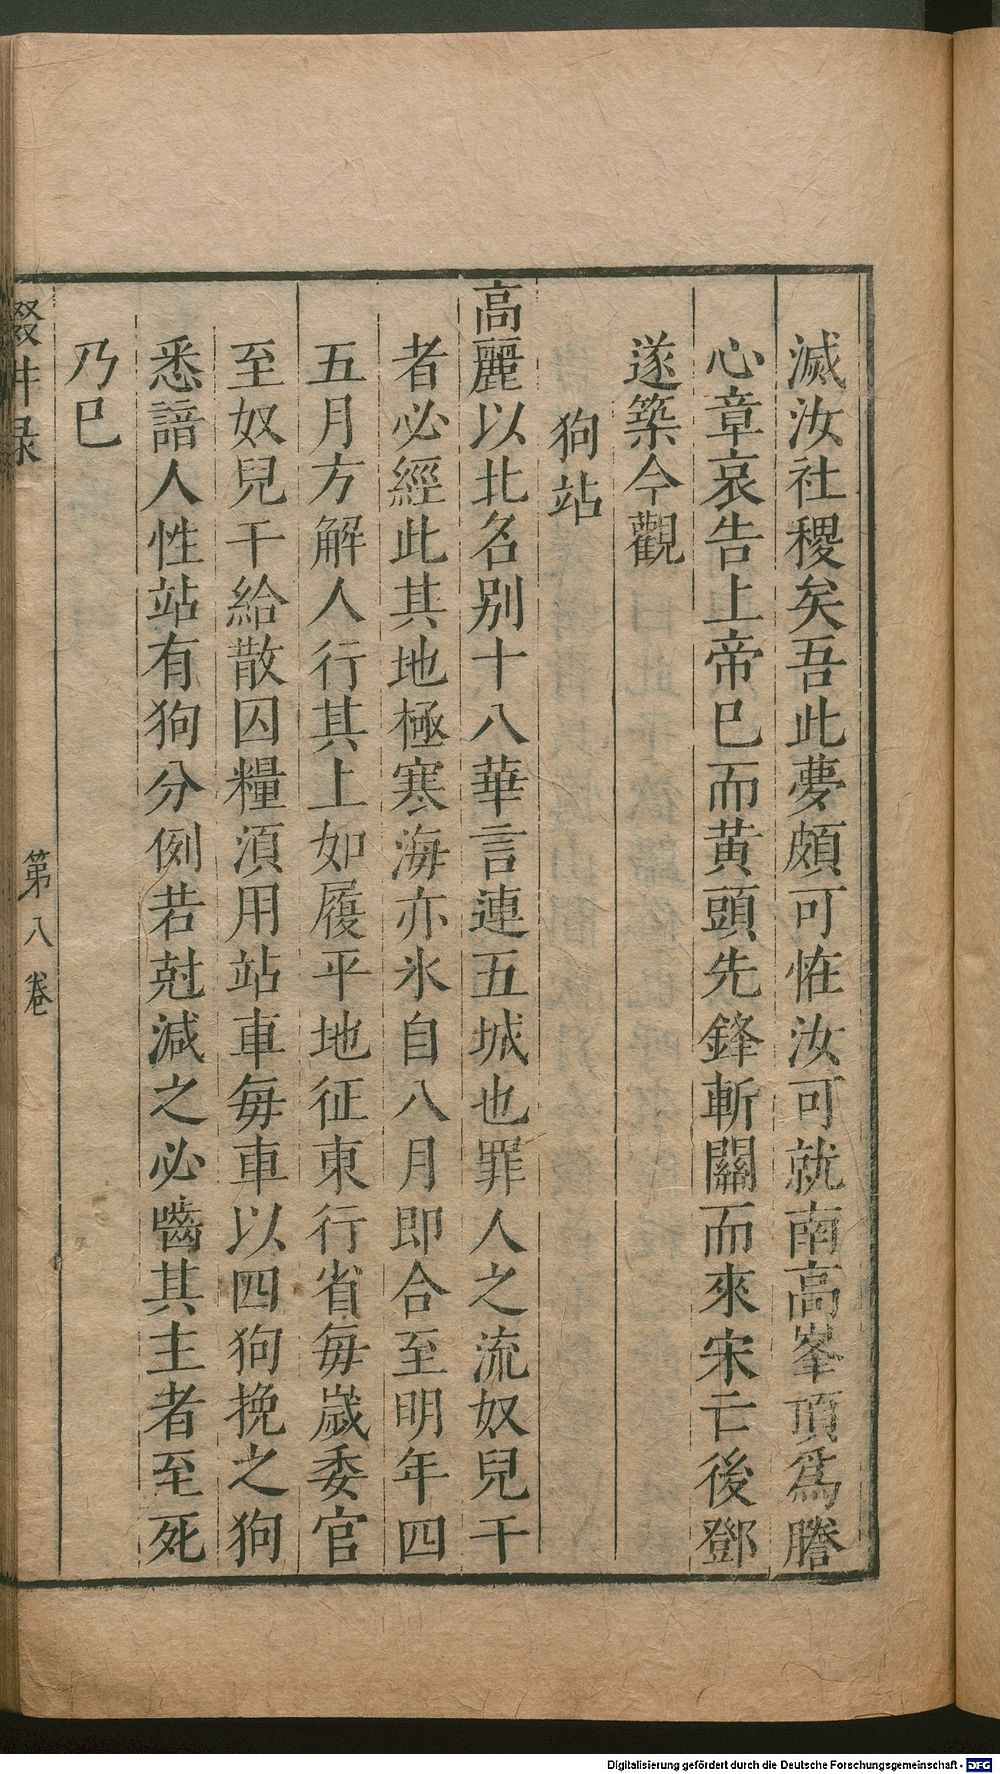 滅汝社稷矣吾此夢頗可恠汝可就南高峯頂爲謄
心章哀告上帝巳而黄頭先鋒斬關而來宋亡後鄧
遂築今觀
狗站
高麗以北名别十八華言連五城也罪人之流奴兒干
者必經此其地極寒海亦氷自八月即合至明年四
五月方解人行其上如履平地征東行省每歲委官
至奴兒干給散囚糧須用站車每車以四狗挽之狗
悉諳人性站有狗分例若尅減之必嚙其主者至死
乃巳
輟畊录
第八卷
Digitalisierung gefördert durch die Deutsche Forschungsgemeinschaft - DFG